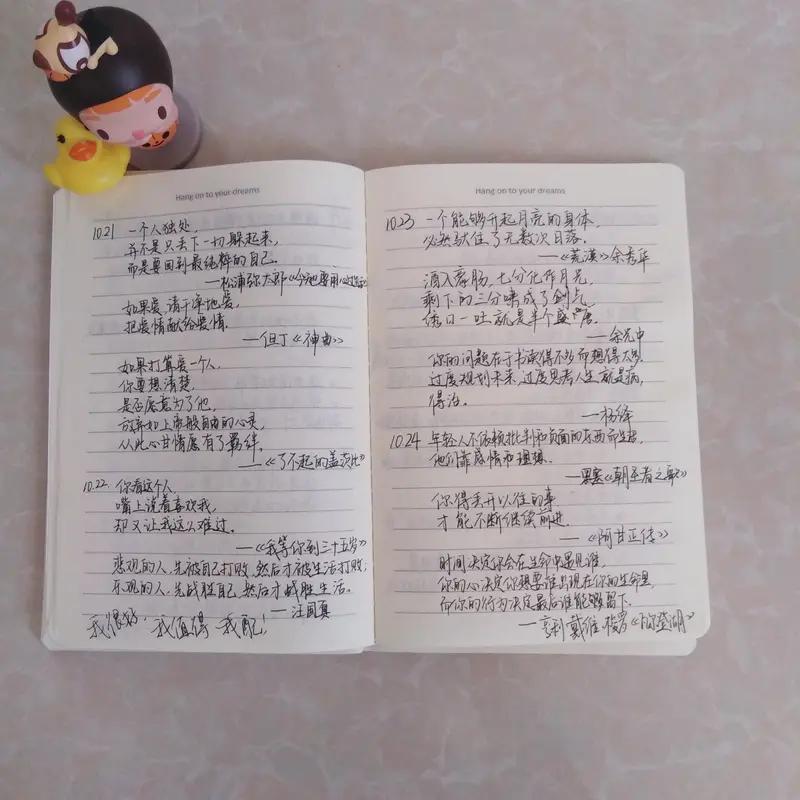 Hang on to your dreams
10.21 一个人独处,
并不是只丢下一切躲起来,
而是要回到最纯粹的自己。
—松浦弥太郎《今
如果爱,请干净地爱,
把爱情献给爱情。
—但丁《神曲》
如果打算爱一个人,
你要想清楚,
是否愿意为了他,
放弃如上帝般自由的心灵,
从此心甘情愿有了羁绊。
—《了不起的盖茨比》
10.22. 你看这个人,
嘴上说着喜欢我,
却又让我这么难过。
—《我等你到三十五岁》
悲观的人,先被自己打败,然后才被生活打败;
乐观的人,先战胜自己,然后才战胜生活。
—汪国真
我很好,我值得 我配!
Hang on to your dreams
10.23 一个能够升起月亮的身体,
必然驮住了无数次日落。
—《荒漠》余秀华
酒入豪肠,七分化作月光,
剩下的三分啸成了剑气,
绣口一吐就是半个盛唐。
—余光中
你的问题在于书读得不多而想得太多,
过度规划未来,过度思考人生就是病,
得治。
—杨绛
10.24 年轻人不依赖批判和负面的东西而生活,
他们靠感情和理想。
—黑塞《朝圣者之歌》
你得丢开以往的事,
才能不断继续前进。
—《阿甘正传》
时间决定你会在生命中遇见谁,
你的心决定你想要谁出现在你的生命里,
而你的行为决定最后谁能够留下。
—亨利·戴维·梭罗《瓦尔登湖》